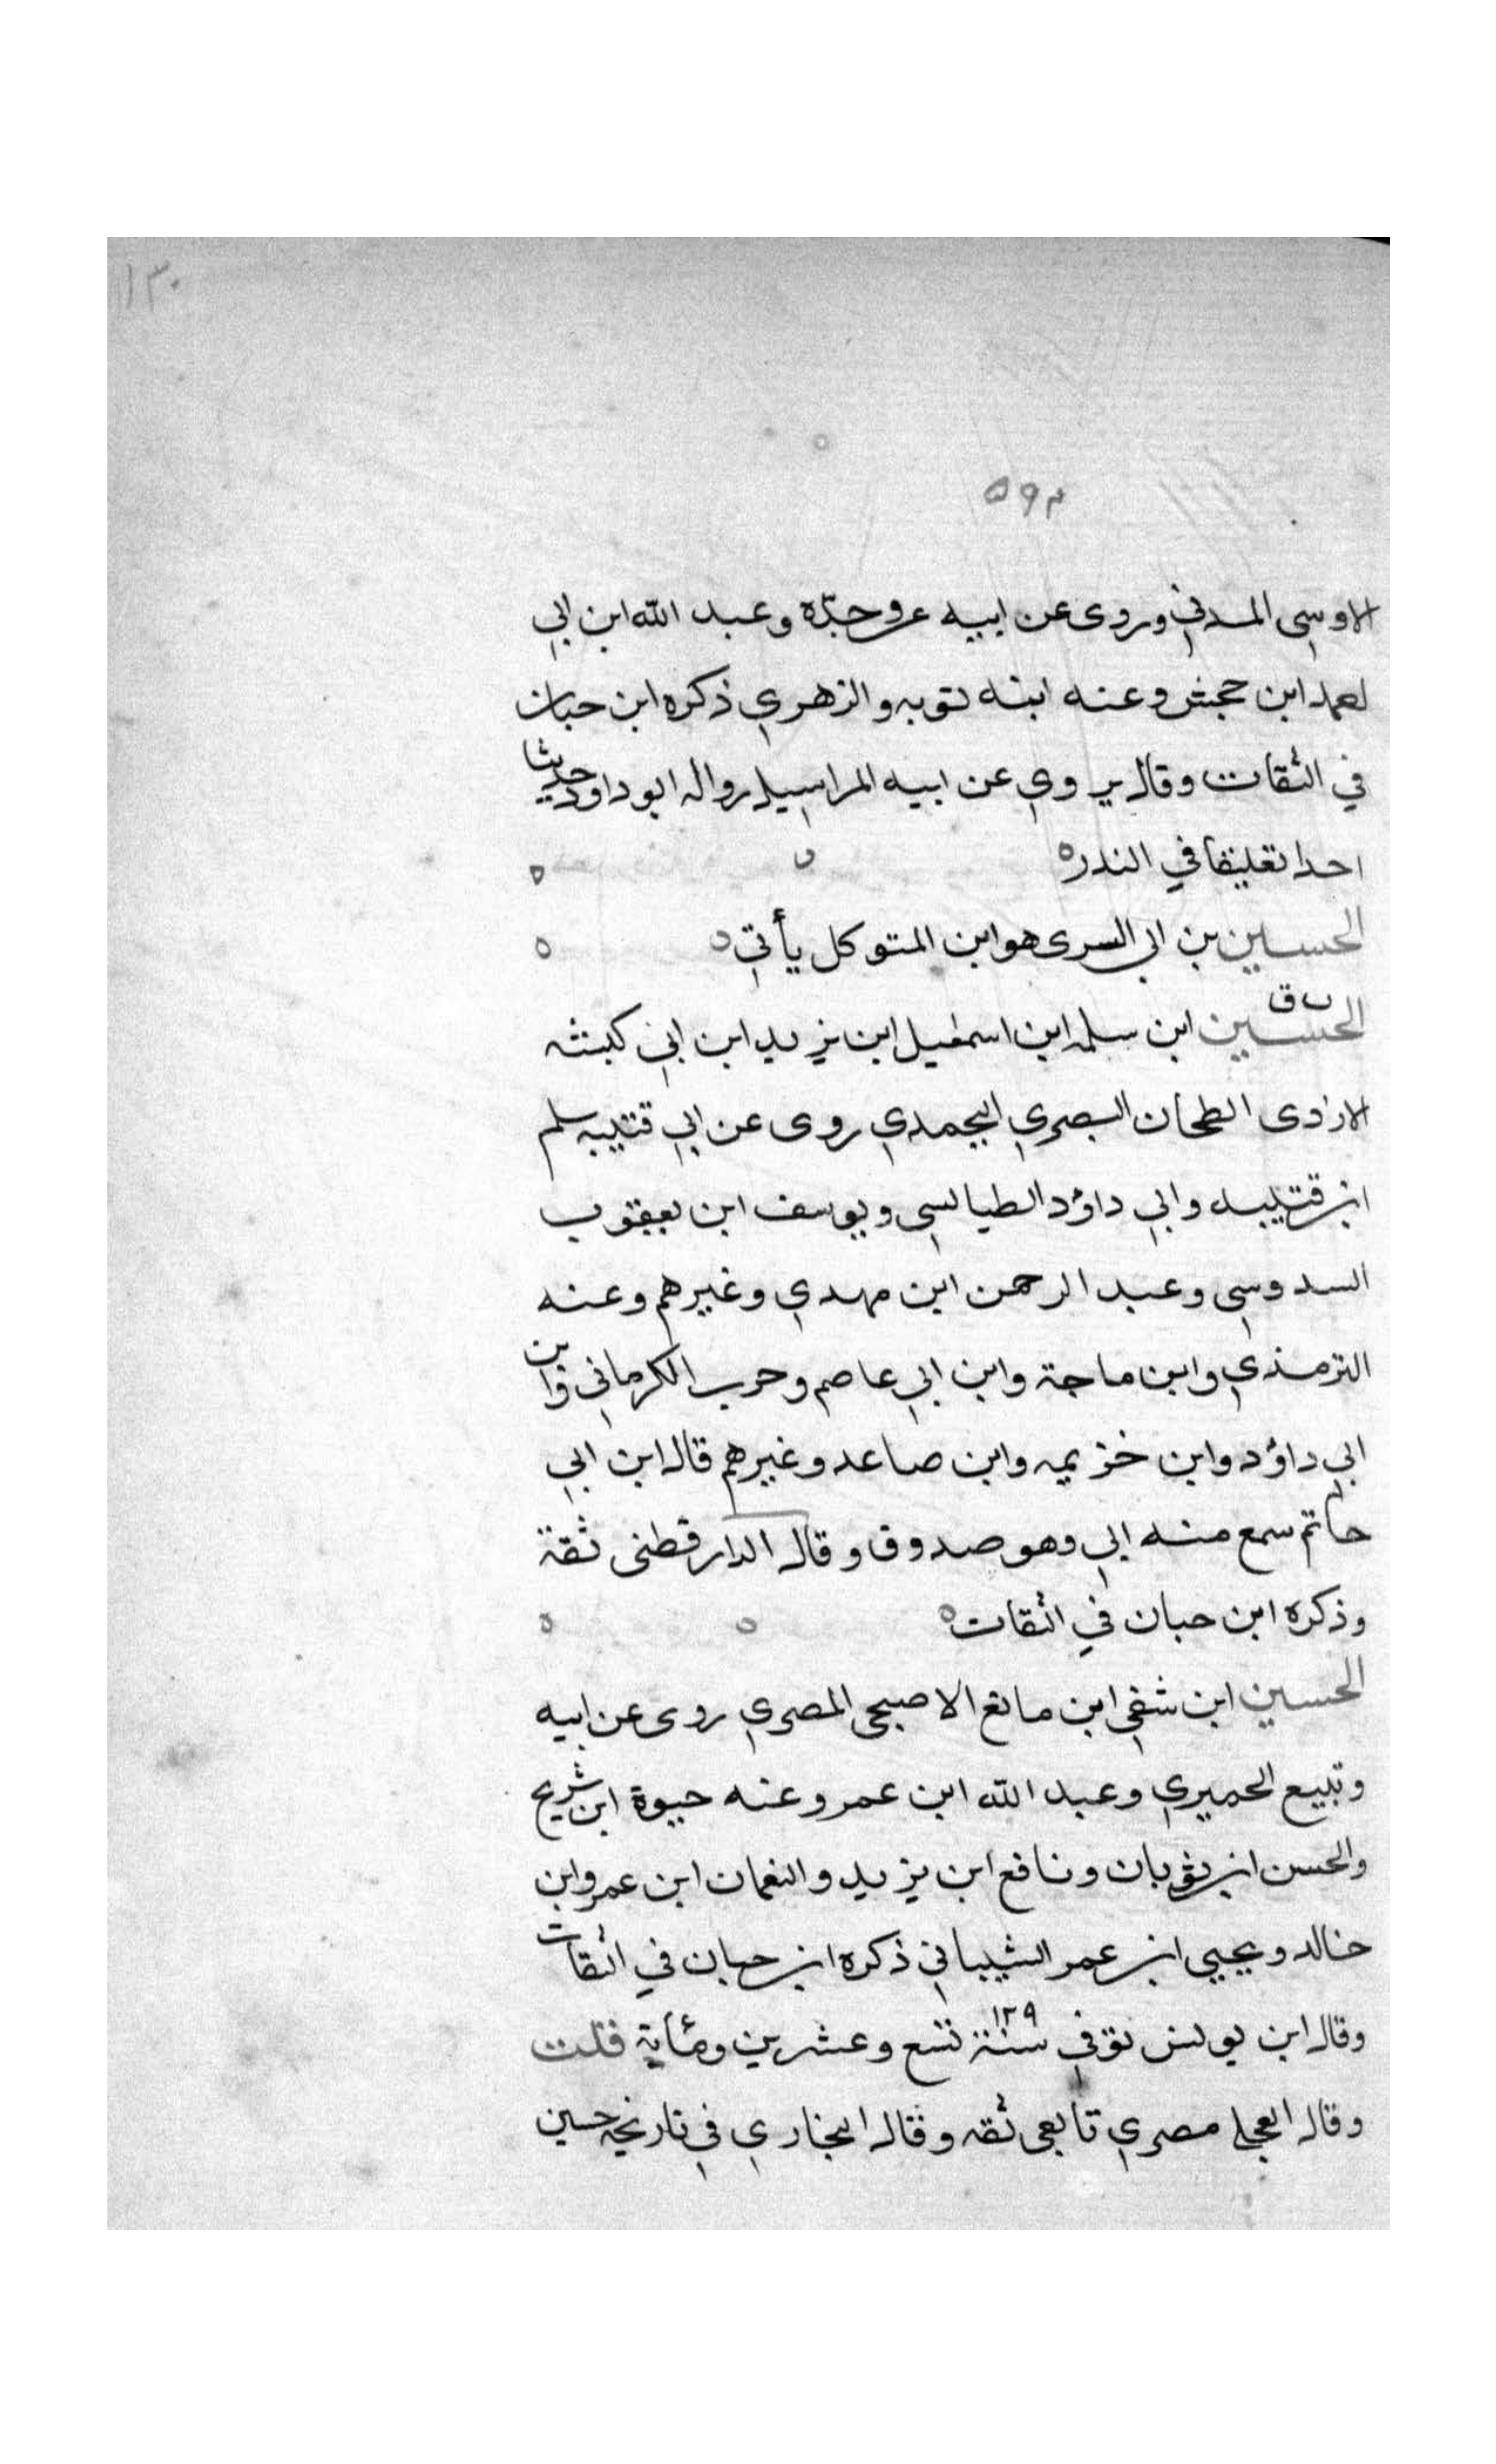 ١٣٠
٥٩٣
الاوسى المدني وروى عن ابيه عن جدّه وعبد الله ابن ابي
احمد ابن جحش وعنه ابنه توبه والزهري ذكره ابن حبان
في الثقات وقال يروي عن ابيه المراسيل روا له ابو داود حديثا
احدا تعليقا في النذر
الحسين بن ابي السرى هو ابن المتوكل يأتي
ت ق
الحسين ابن سلمه ابن اسمعيل ابن يزيد ابن ابي كبشه
الازدى الطحان البصري اليحمدي روى عن ابي قتيبه سلم
ابن قتيبه وابي داؤد الطيالسى ويوسف ابن يعقوب
السدوسى وعبد الرحمن ابن مهدي وغيرهم وعنه
الترمذي وابن ماجة وابن ابي عاصم وحرب الكرماني وابن
ابي داؤد وابن خزيمه وابن صاعد وغيرهم قال ابن ابي
حاتم سمع منه ابي وهو صدوق وقال الدارقطنى ثقة
وذكره ابن حبان في الثقات
الحسين ابن شفي ابن ماتع الاصبحى المصري روى عن ابيه
وتبيع الحميري وعبد الله ابن عمر وعنه حيوة ابن شريح
والحسن ابن ثوبان ونافع ابن يزيد والنعمان ابن عمر وابن
خالد ويحيى ابن عمر الشيباني ذكره ابن حبان في الثقات
وقال ابن يونس توفي سنة ١٢٩ تسع وعشرين ومأية قلت
وقال العجلى مصري تابعى ثقه وقال البخاري في تاريخه حسين